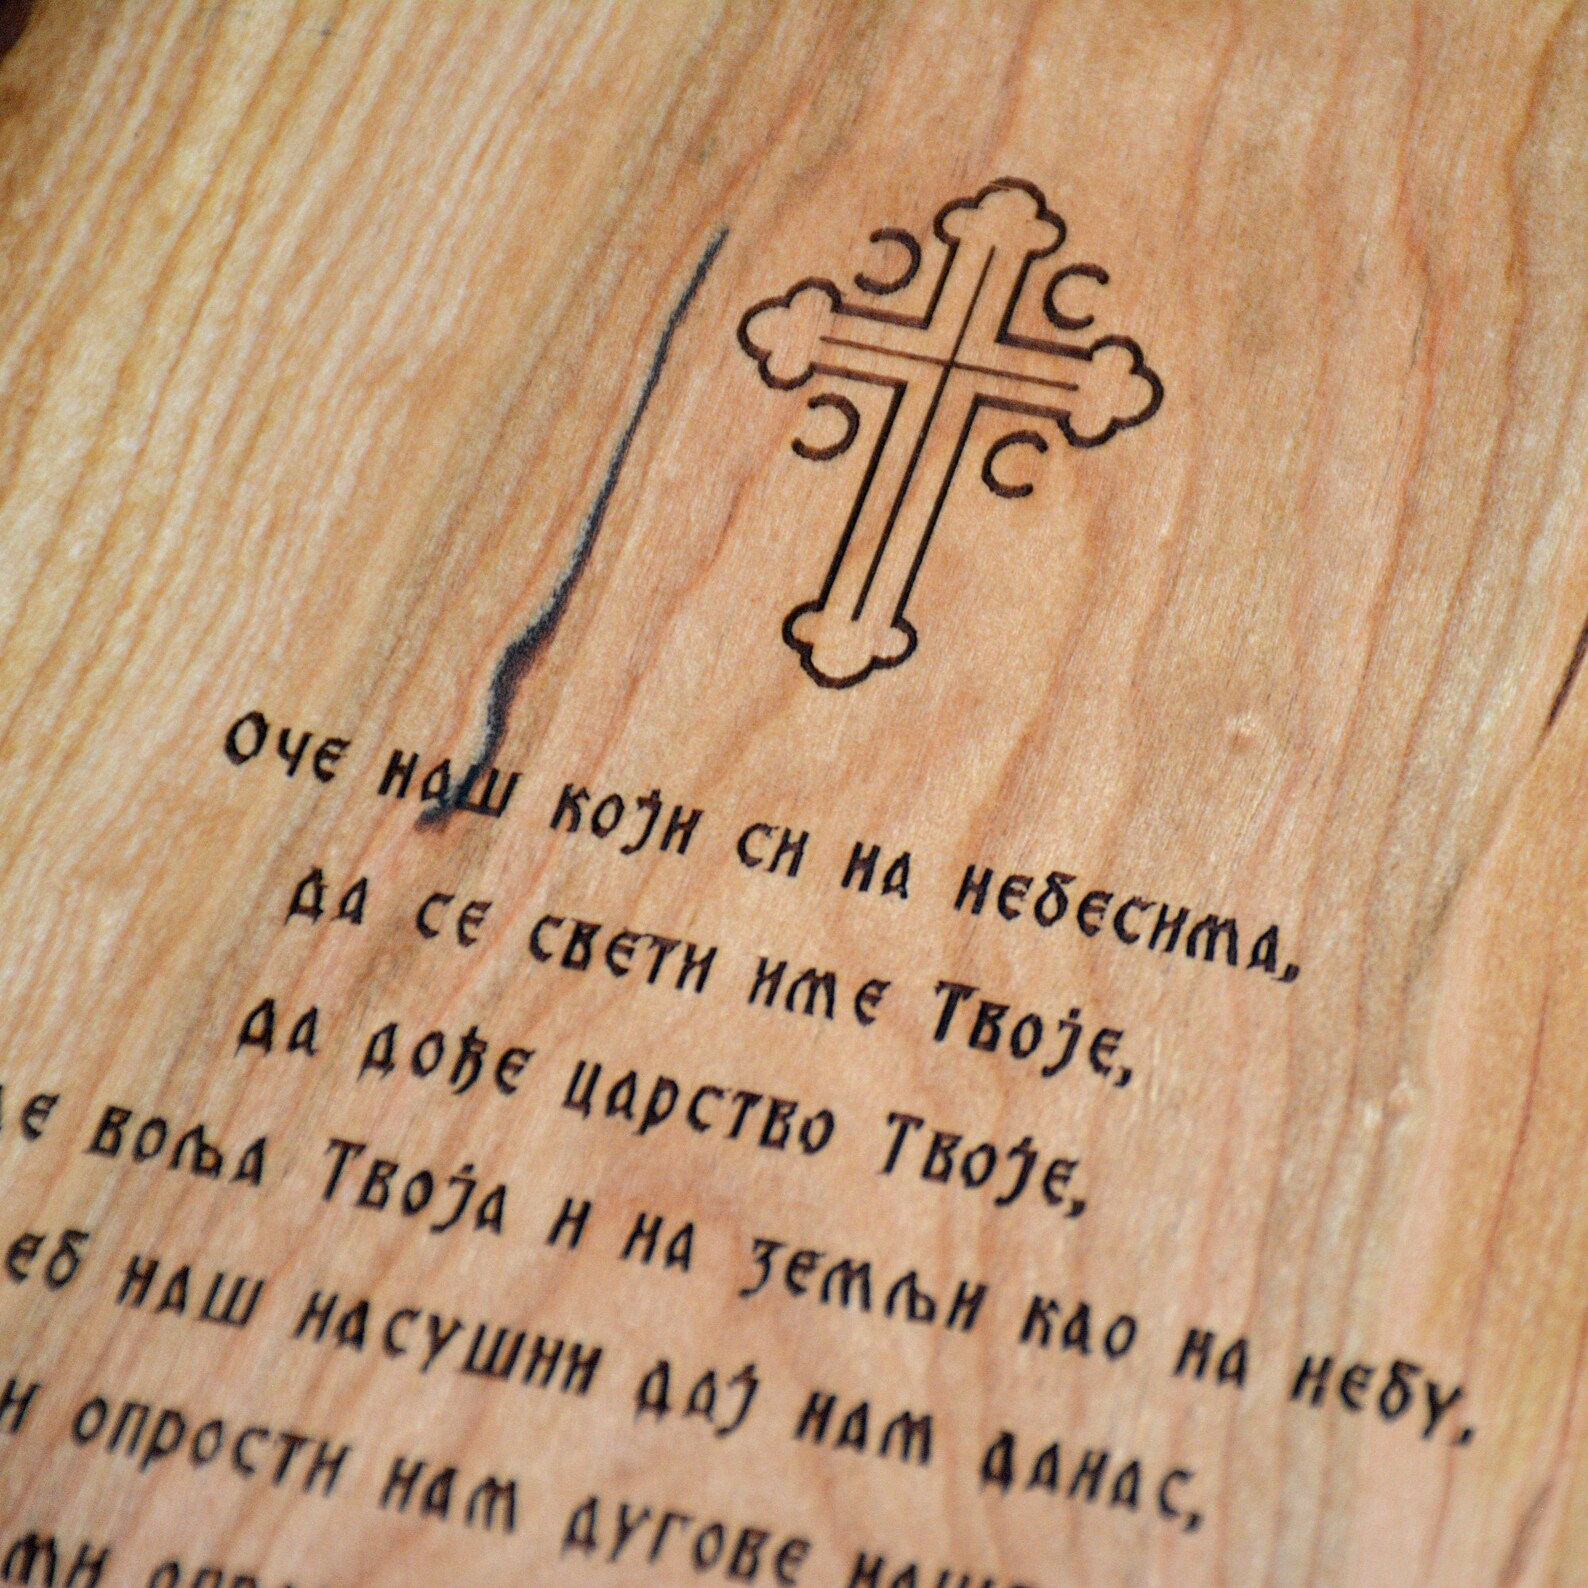 С С
С С
Оче наш који си на небесима,
да се свети име Твоје,
да дође царство Твоје,
воља Твоја и на земљи као на небу,
наш насушни дај нам данас,
и опрости нам дугове